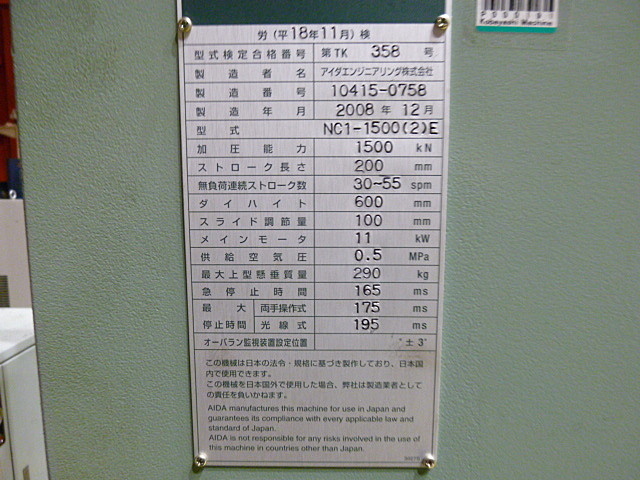 Kobayashi Machine
労(平18年11月)検
型式検定合格番号 第TK 358 号
製造者名 アイダエンジニアリング株式会社
製造番号 10415-0758
製造年月 2008年 12月
型式 NC1-1500(2)E
加圧能力 1500 kN
ストローク長さ 200 mm
無負荷連続ストローク数 30~55 spm
ダイハイト 600 mm
スライド調節量 100 mm
メインモータ 11 kW
供給空気圧 0.5 MPa
最大上型懸垂質量 290 kg
急停止時間 165 ms
最大停止時間 両手操作式 175 ms
光線式 195 ms
オーバラン監視装置設定位置 ° ± 3°
この機械は日本の法令・規格に基づき製作しており、日本国
内で使用できます。
この機械を日本国外で使用した場合、弊社は製造業者として
の責任を負いかねます。
AIDA manufactures this machine for use in Japan and
guarantees its compliance with every applicable law and
standard of Japan.
AIDA is not responsible for any risks involved in the use of
this machine in countries other than Japan.